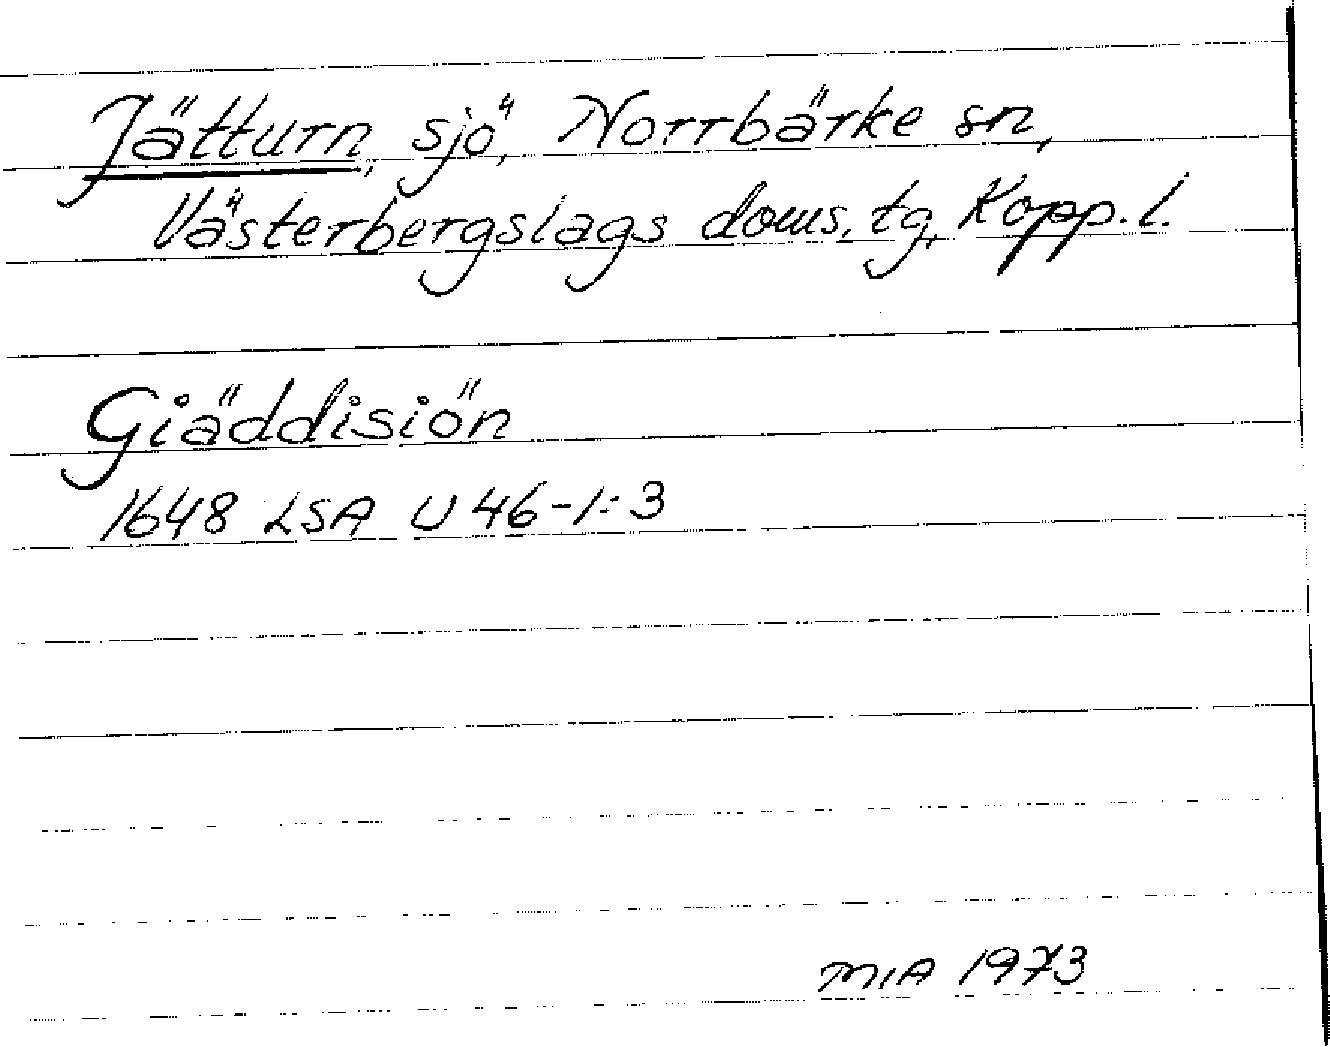 Jätturn, sjö, Norrbärke sn,
Västerbergslags doms. tg, Kopp. l.
Giäddisiön
1648 LSA U 46-1:3
MIA 1973